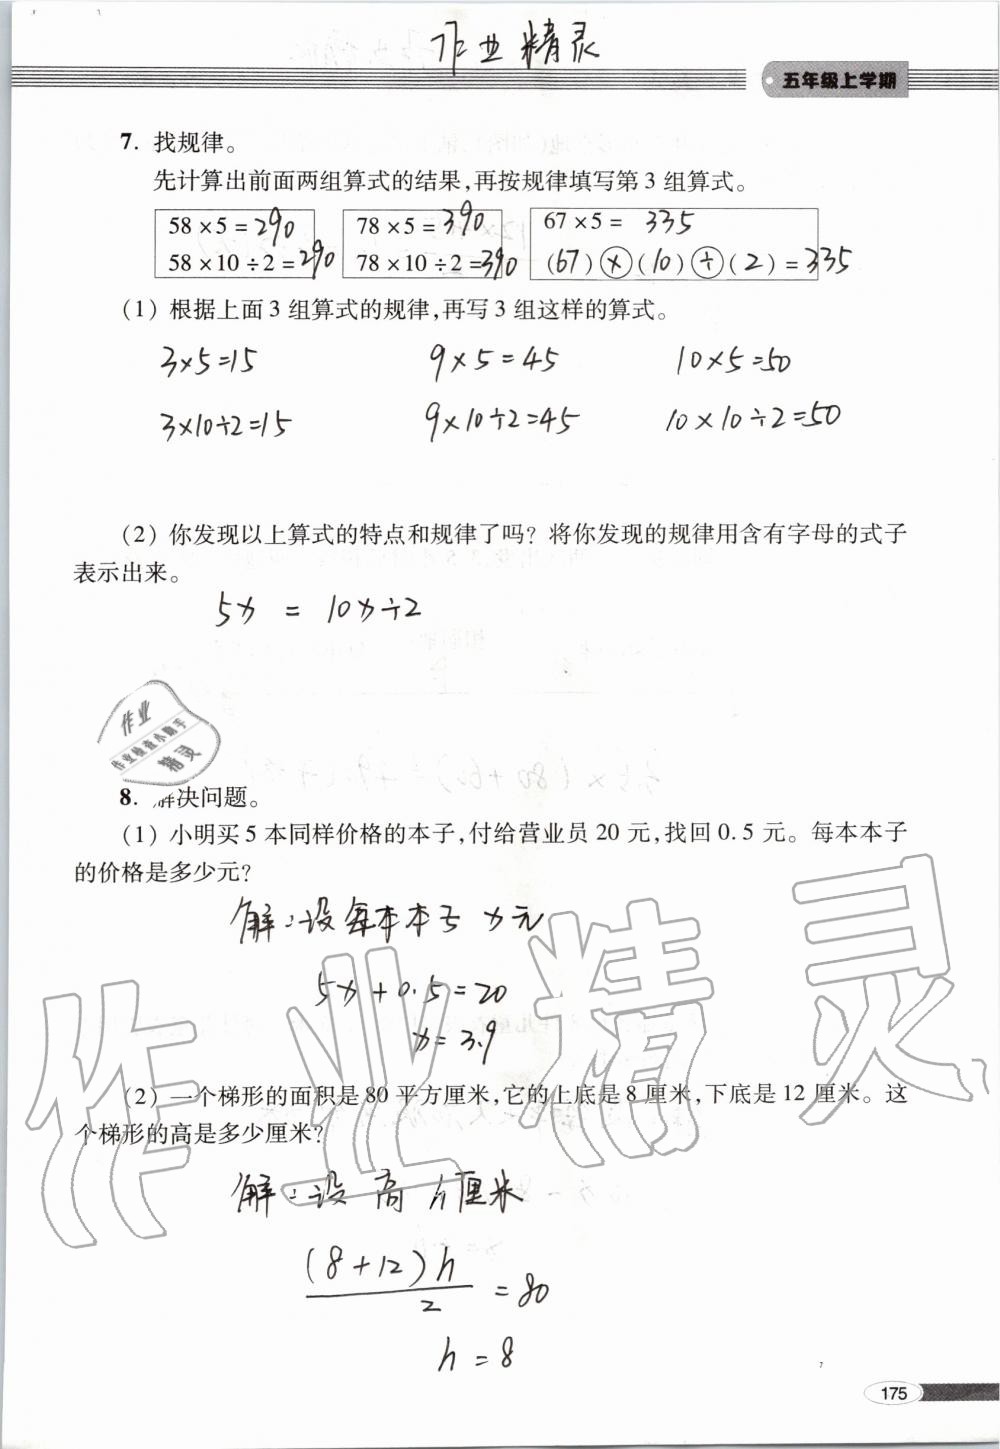 作业精灵
五年级上学期
7. 找规律。
先计算出前面两组算式的结果,再按规律填写第3组算式。
58×5=290 78×5=390 67×5= 335
58×10÷2=290 78×10÷2=390 (67)×(10)÷(2)=335
(1) 根据上面3组算式的规律,再写3组这样的算式。
3×5=15 9×5=45 10×5=50
3×10÷2=15 9×10÷2=45 10×10÷2=50
(2) 你发现以上算式的特点和规律了吗? 将你发现的规律用含有字母的式子
表示出来。
5x = 10x÷2
作业
作业检查小助手
精灵
8. 解决问题。
(1) 小明买5本同样价格的本子,付给营业员20元,找回0.5元。每本本子
的价格是多少元?
解:设每本本子x元
5x+0.5=20
x=3.9
作业精灵
(2) 一个梯形的面积是80平方厘米,它的上底是8厘米,下底是12厘米。这
个梯形的高是多少厘米?
解:设高h厘米
(8+12)h
2
=80
h=8
175